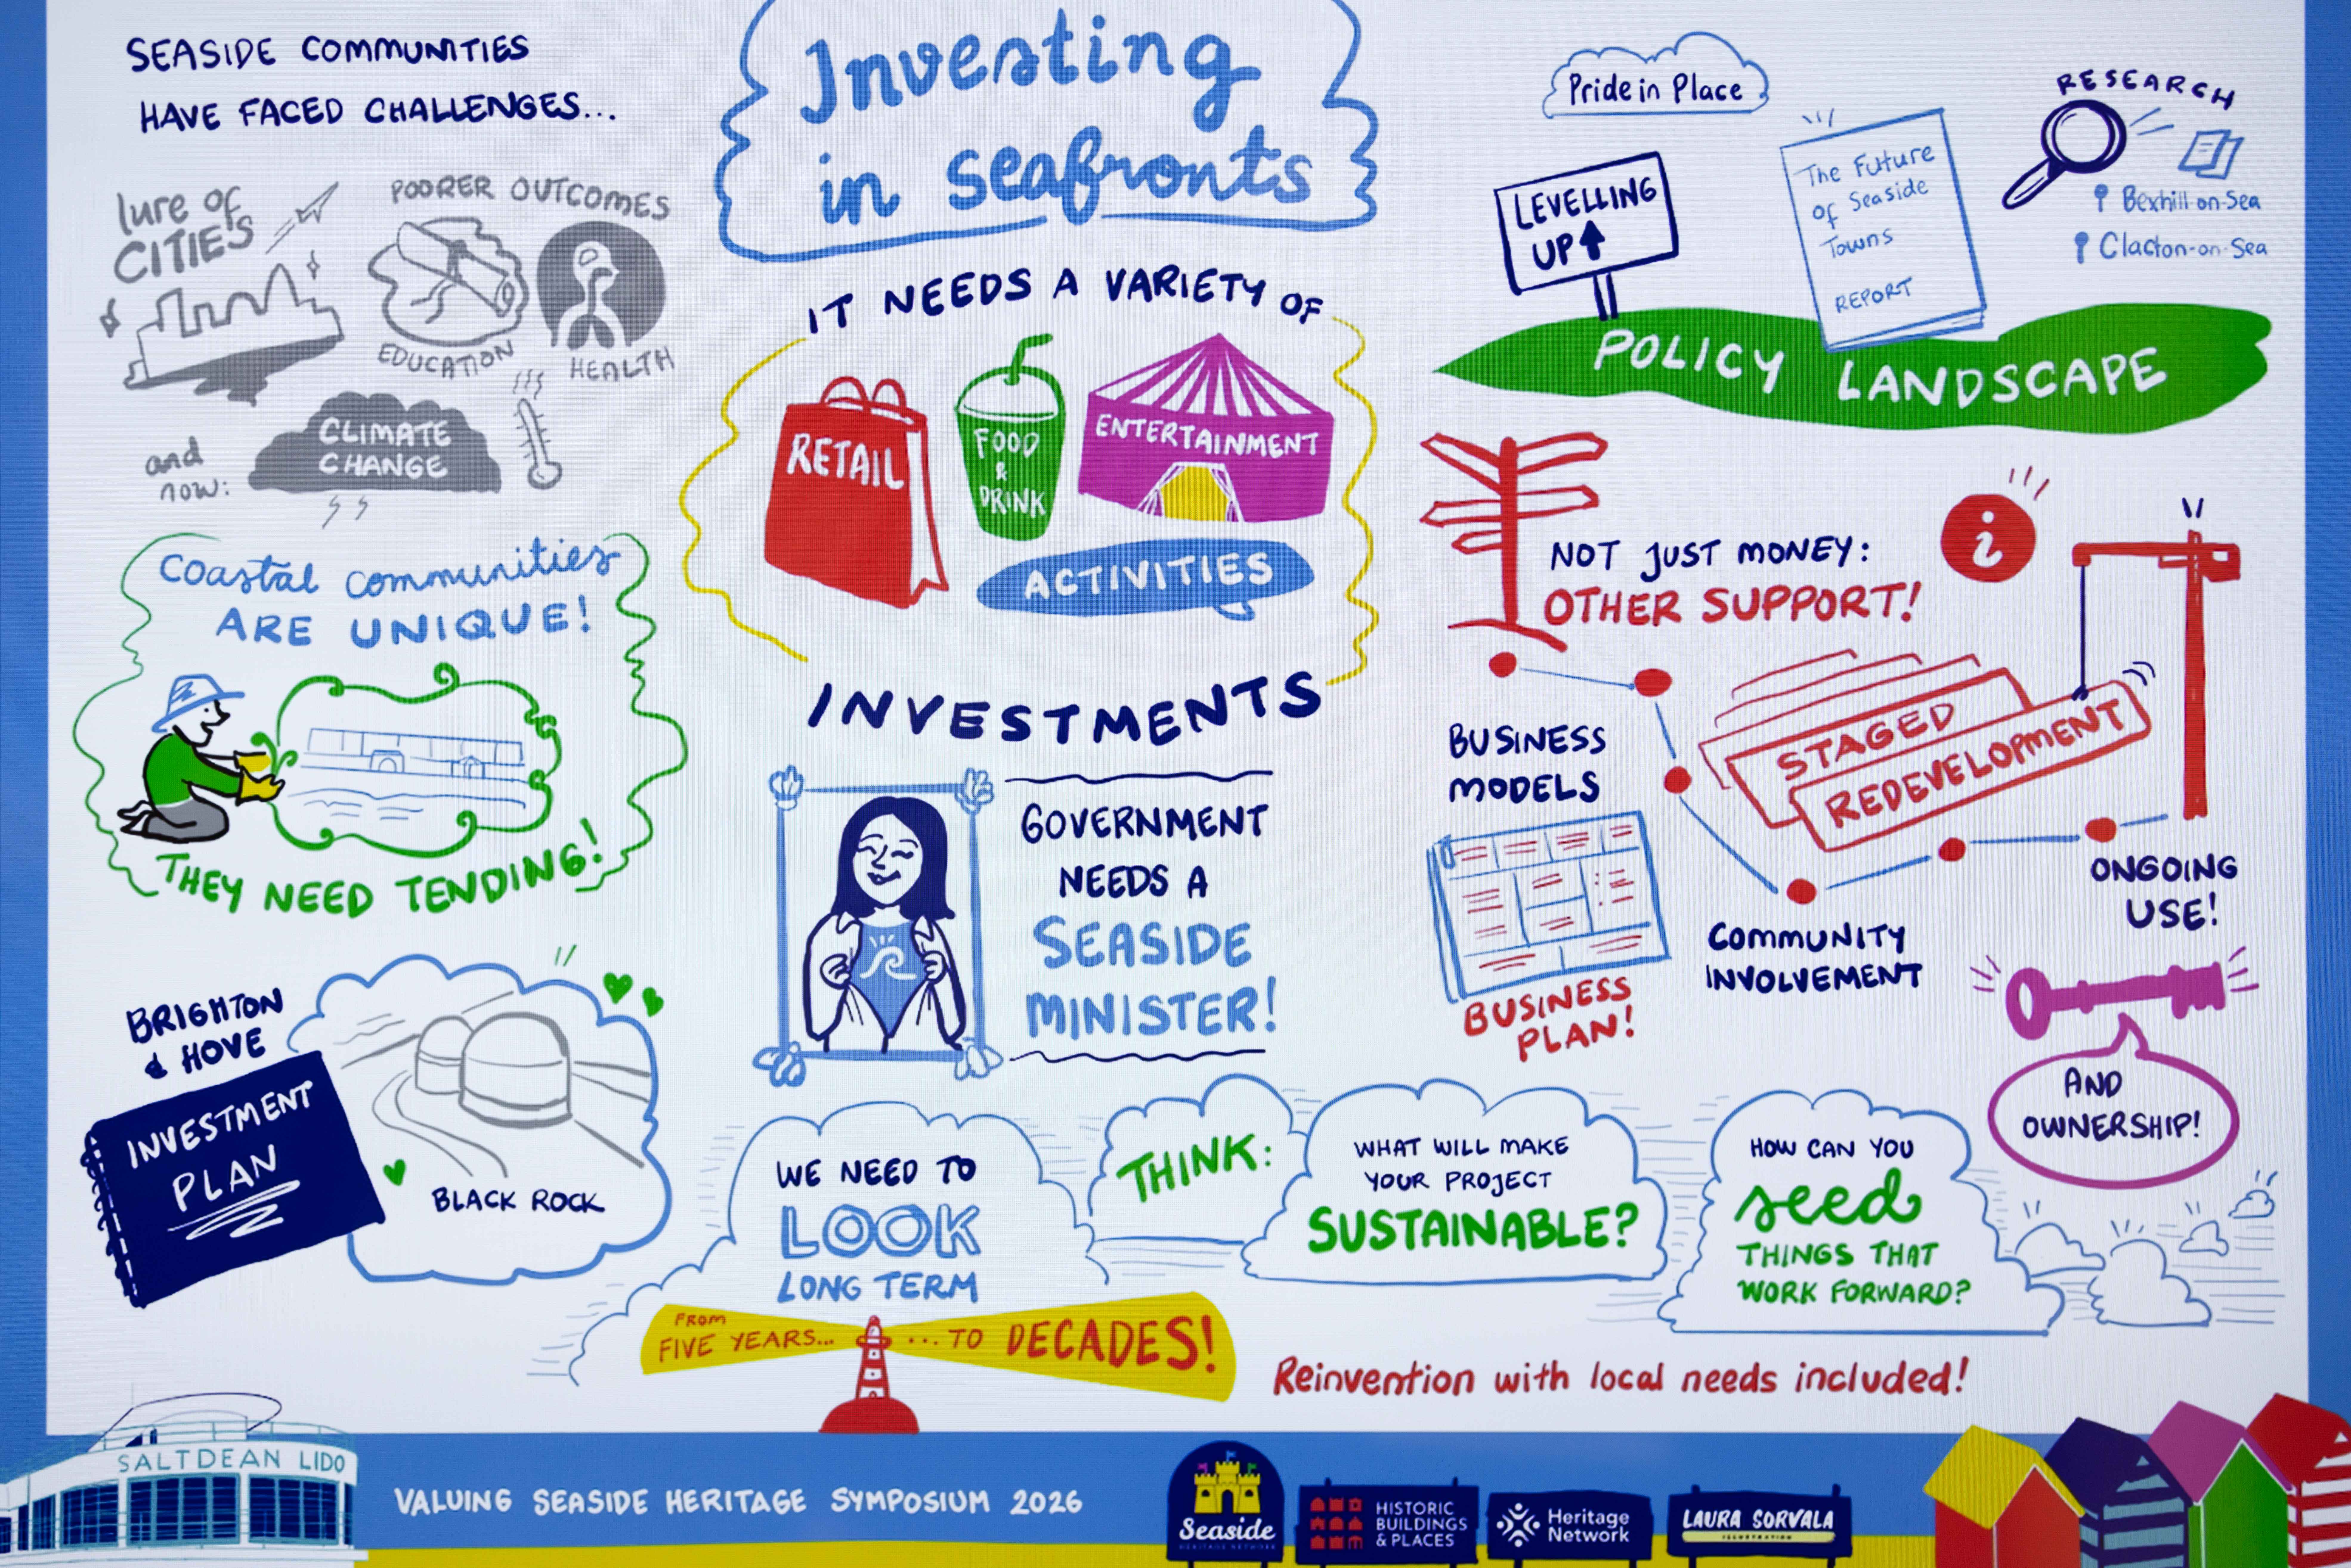 SEASIDE COMMUNITIES
HAVE FACED CHALLENGES...
lure of
CITIES
POORER OUTCOMES
EDUCATION
HEALTH
and
now:
CLIMATE
CHANGE
Coastal communities
ARE UNIQUE!
THEY NEED TENDING!
BRIGHTON
& HOVE
INVESTMENT
PLAN
BLACK ROCK
Investing
in seafronts
IT NEEDS A VARIETY OF
RETAIL
FOOD
&
DRINK
ENTERTAINMENT
ACTIVITIES
INVESTMENTS
GOVERNMENT
NEEDS A
SEASIDE
MINISTER!
WE NEED TO
LOOK
LONG TERM
FROM
FIVE YEARS...
...TO DECADES!
Pride in Place
LEVELLING
UP
The Future
of Seaside
Towns
REPORT
RESEARCH
Bexhill-on-Sea
Clacton-on-Sea
POLICY LANDSCAPE
NOT JUST MONEY:
OTHER SUPPORT!
i
BUSINESS
MODELS
BUSINESS
PLAN!
STAGED
REDEVELOPMENT
COMMUNITY
INVOLVEMENT
ONGOING
USE!
AND
OWNERSHIP!
THINK:
WHAT WILL MAKE
YOUR PROJECT
SUSTAINABLE?
HOW CAN YOU
seed
THINGS THAT
WORK FORWARD?
Reinvention with local needs included!
SALTDEAN LIDO
VALUING SEASIDE HERITAGE SYMPOSIUM 2026
Seaside
HERITAGE NETWORK
HISTORIC
BUILDINGS
& PLACES
Heritage
Network
LAURA SORVALA
ILLUSTRATION